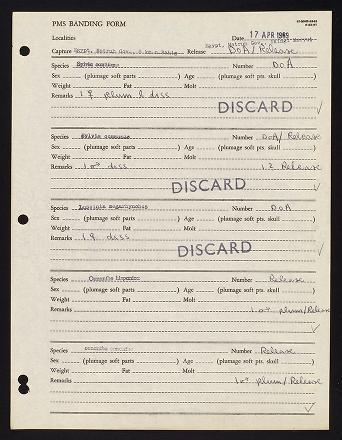 PMS BANDING FORM
Localities
Date 17 APR 1969
Capture Egypt, Matruh Gov., Release Egypt, Matruh Gov.,
DOA / Release
Species Sylvia Number DOA
Sex (plumage soft parts) Age (plumage soft pts. skull)
Weight Fat Molt
Remarks 1 ♀ plum & diss
DISCARD
Species Sylvia communis Number DOA/Release
Sex (plumage soft parts) Age (plumage soft pts. skull)
Weight Fat Molt
Remarks 1 ♂ diss 12 Release
DISCARD
Species Luscinia megarhynchos Number DOA
Sex (plumage soft parts) Age (plumage soft pts. skull)
Weight Fat Molt
Remarks 1 ♀ diss
DISCARD
Species Oenanthe Number Release
Sex (plumage soft parts) Age (plumage soft pts. skull)
Weight Fat Molt
Remarks 1 ♂ plum/Release
Species Oenanthe Number Release
Sex (plumage soft parts) Age (plumage soft pts. skull)
Weight Fat Molt
Remarks 1 ♂ plum/Release